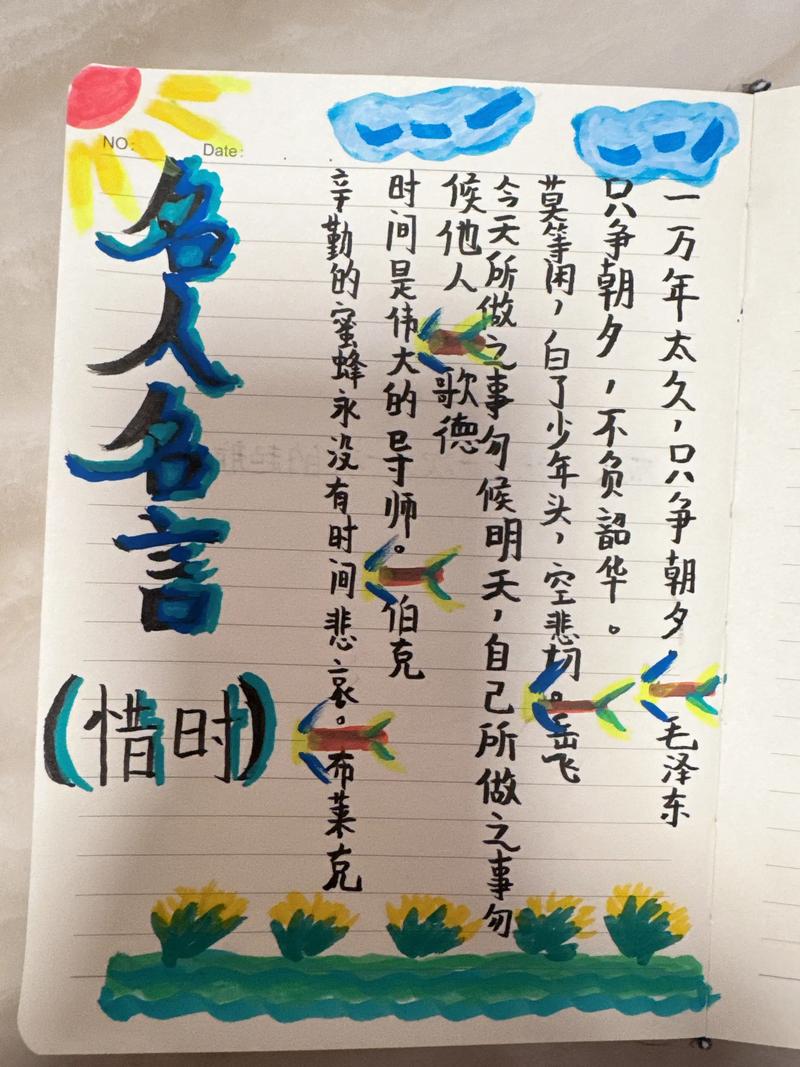 NO:
Date:
一万年太久，只争朝夕 毛泽东
只争朝夕，不负韶华。
莫等闲，白了少年头，空悲切。岳飞
今天所做之事勿候明天，自己所做之事勿
候他人 歌德
时间是伟大的导师。伯克
辛勤的蜜蜂永没有时间悲哀。布莱克
名人名言
(惜时)